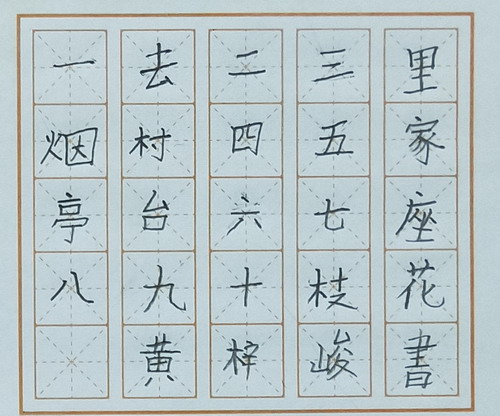 一去二三里
烟村四五家
亭台六七座
八九十枝花
黄梓峻書